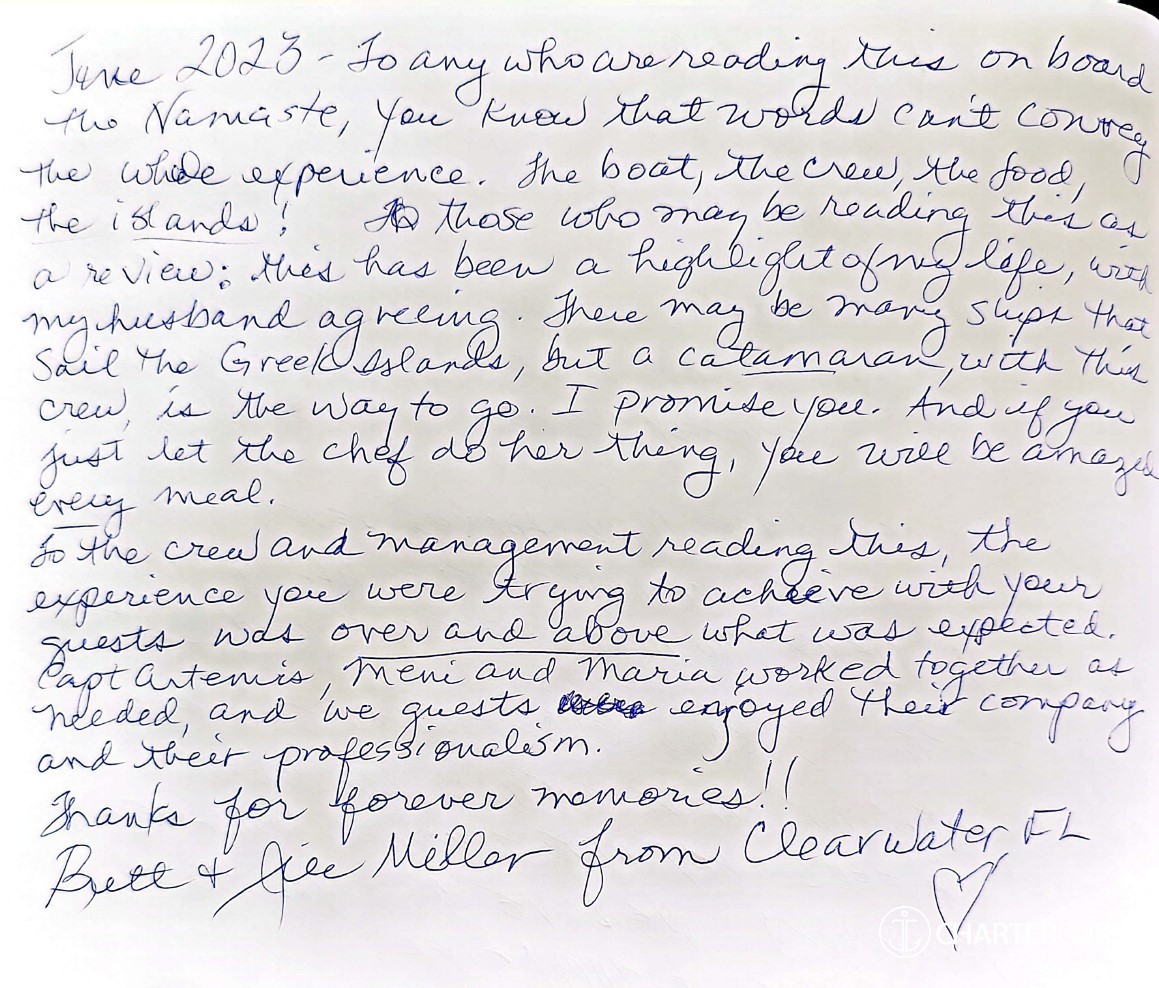 June 2023 - To any who are reading this on board
the Namaste, you know that words can't convey
the whole experience. The boat, the crew, the food,
the islands! To those who may be reading this as
a review: this has been a highlight of my life, with
my husband agreeing. There may be many ships that
Sail the Greek Islands, but a catamaran, with this
crew, is the way to go. I promise you. And if you
just let the chef do her thing, you will be amazed
every meal.
To the crew and management reading this, the
experience you were trying to achieve with your
guests was over and above what was expected.
Capt Artemis, Meni and Maria worked together as
needed, and we guests enjoyed their company
and their professionalism.
Thanks for forever memories!!
Brett + Jill Miller from Clearwater FL
CHARTER